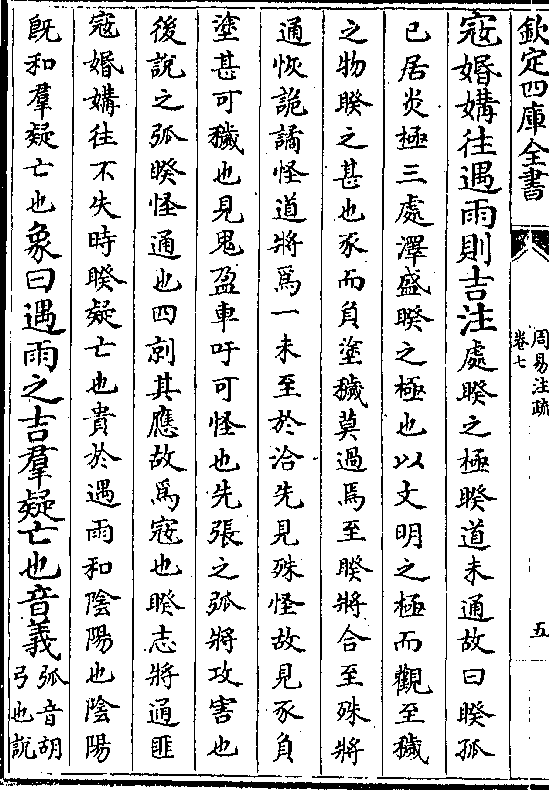 欽定四庫全書
周易注疏
卷七
五
宼婚媾往遇雨則吉注處睽之極睽道未通故曰睽孤
已居炎極三處澤盛睽之極也以文明之極而觀至穢
之物睽之甚也豕而負塗穢莫過焉至睽將合至殊將
通恢詭譎怪道將爲一未至於洽先見殊怪故見豕負
塗甚可穢也見鬼盈車吁可怪也先張之弧將攻害也
後說之弧睽怪通也四剠其應故爲宼也睽志將通匪
宼婚媾往不失時睽疑亡也貴於遇雨和陰陽也陰陽
旣和羣疑亡也象曰遇雨之吉羣疑亡也音義弧音胡
弓也說